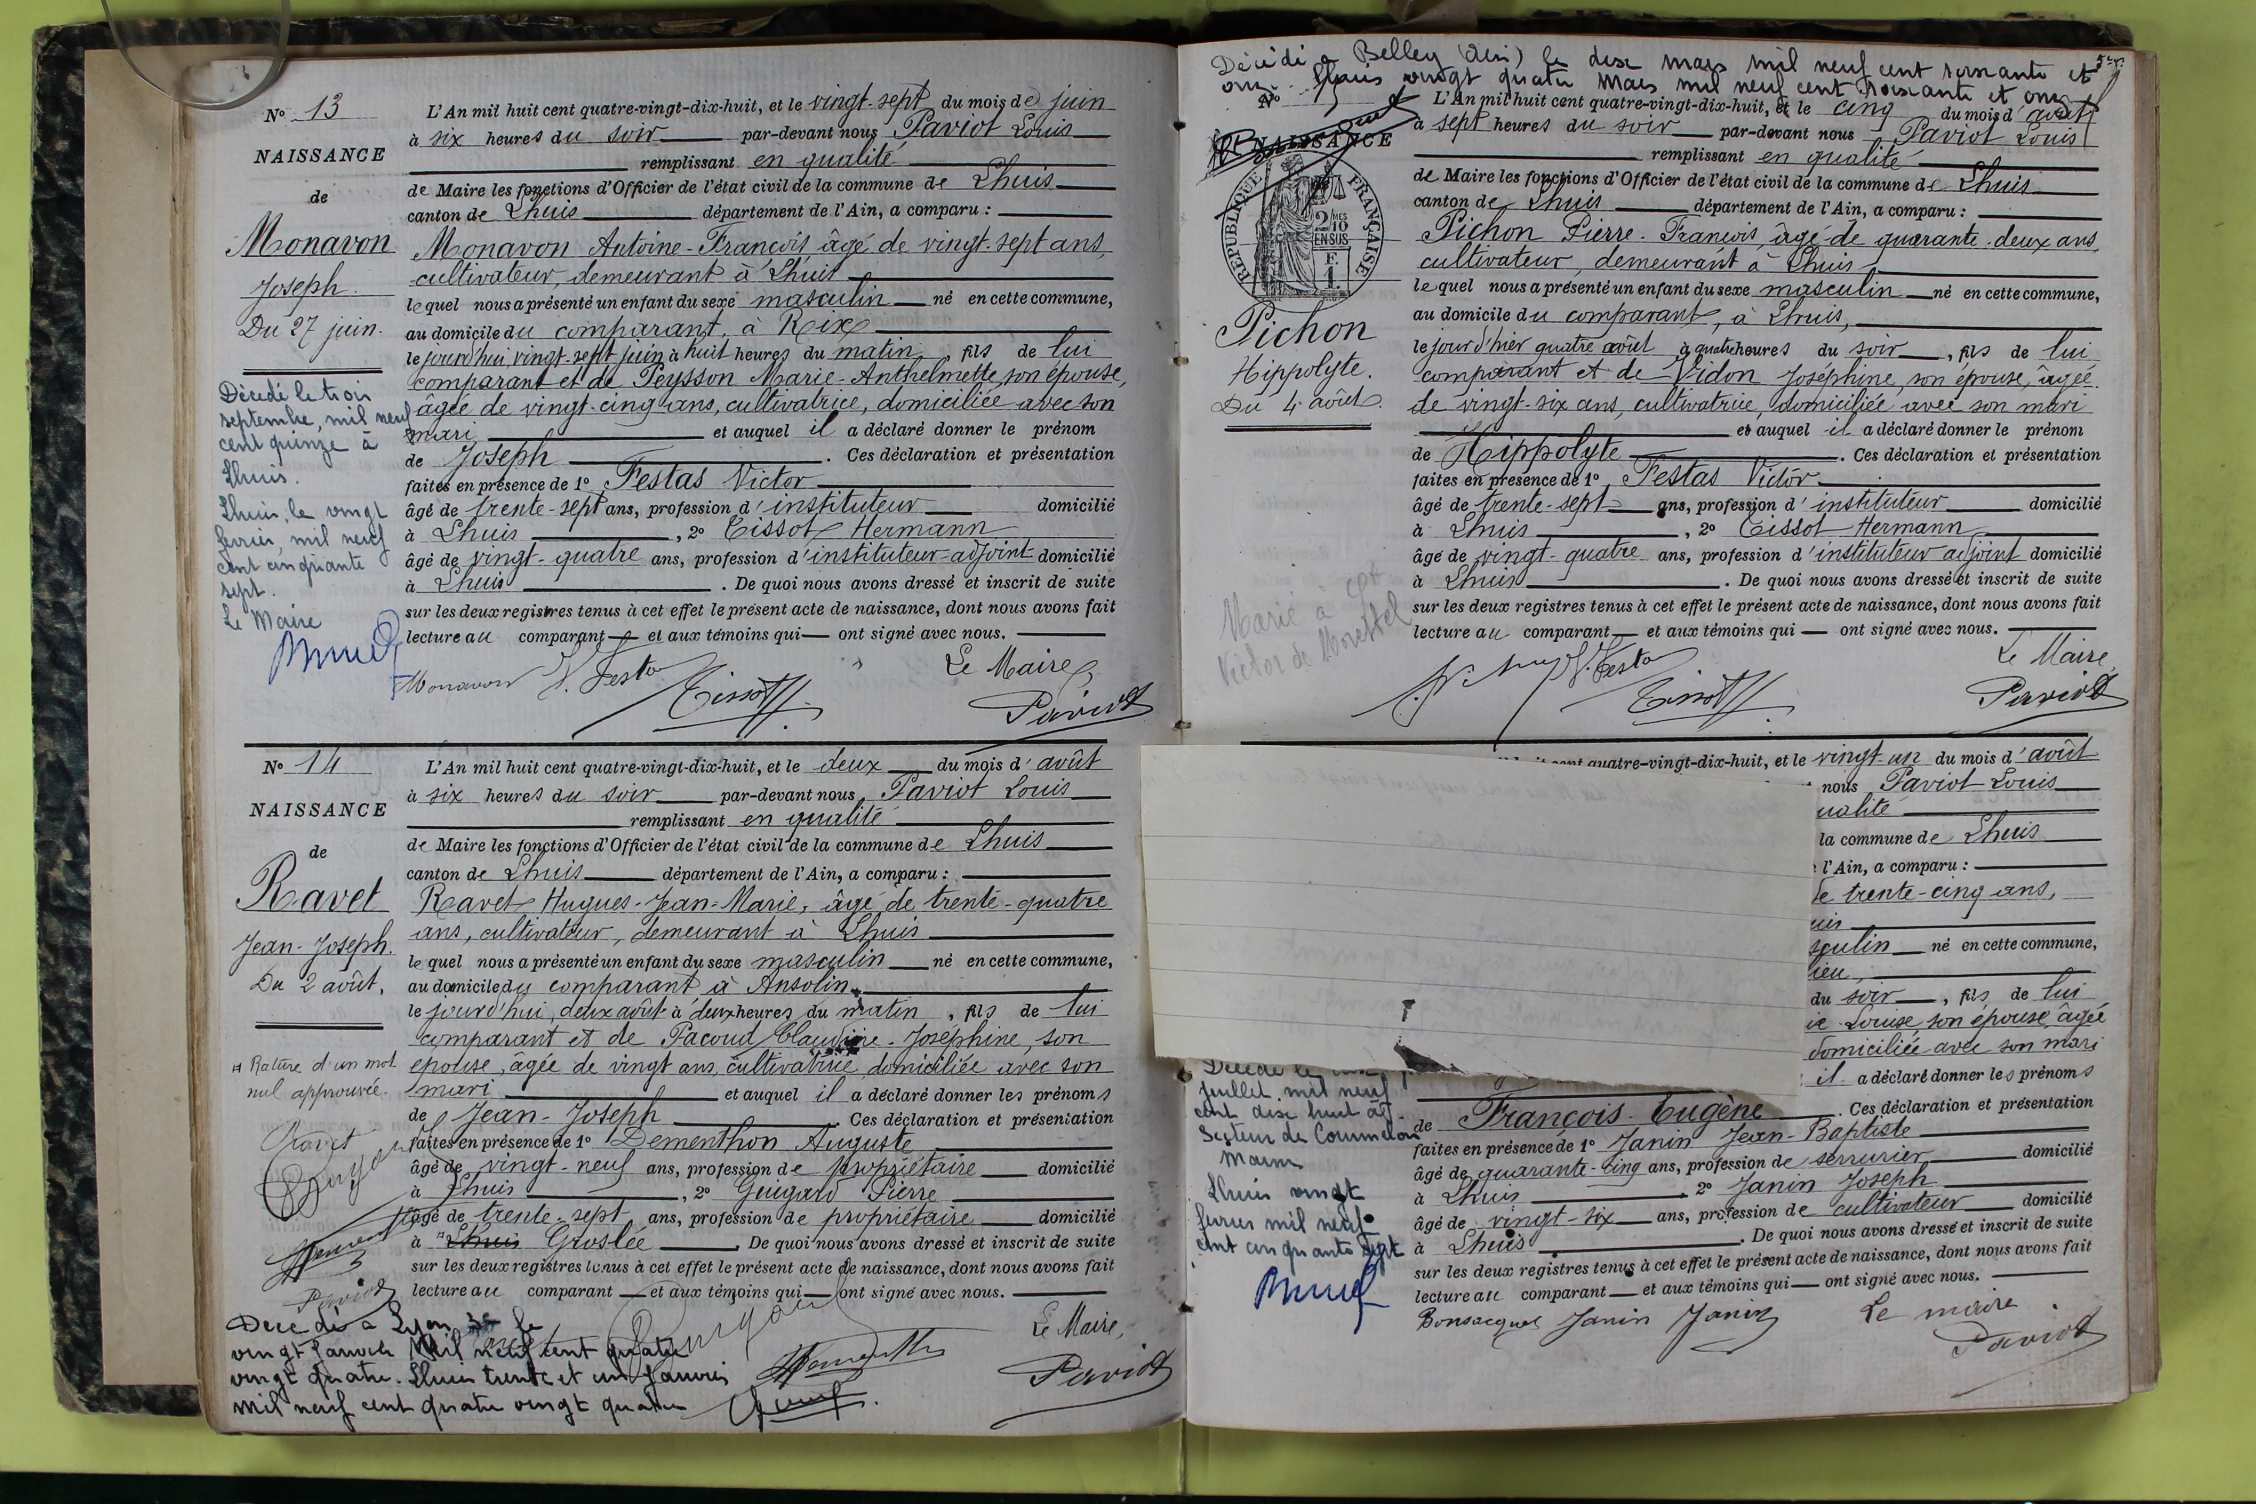 N° 13
NAISSANCE
de
Monavon
Joseph.
Du 27 juin.
Décédé le trois
septembre, mil neuf
cent quinze à
Lhuis.
Lhuis, le vingt
février, mil neuf
cent cinquante
sept.
Le Maire
L'An mil huit cent quatre-vingt-dix-huit, et le vingt-sept du mois de juin
à six heures du soir par-devant nous Paviot Louis
remplissant en qualité
de Maire les fonctions d'Officier de l'état civil de la commune de Lhuis
canton de Lhuis département de l'Ain, a comparu :
Monavon Antoine-François, âgé de vingt-sept ans,
cultivateur, demeurant à Lhuis
lequel nous a présenté un enfant du sexe masculin né en cette commune,
au domicile du comparant, à Rix
le jourd'hui vingt-sept juin à huit heures du matin, fils de lui
comparant et de Peysson Marie-Anthelmette, son épouse,
âgée de vingt-cinq ans, cultivatrice, domiciliée avec son
mari et auquel il a déclaré donner le prénom
de Joseph. Ces déclaration et présentation
faites en présence de 1° Festas Victor
âgé de trente-sept ans, profession d'instituteur domicilié
à Lhuis, 2° Tissot Hermann
âgé de vingt-quatre ans, profession d'instituteur-adjoint domicilié
à Lhuis. De quoi nous avons dressé et inscrit de suite
sur les deux registres tenus à cet effet le présent acte de naissance, dont nous avons fait
lecture au comparant et aux témoins qui ont signé avec nous.
Le Maire,
Monavon V. Festas Tissot Paviot
N° 14
NAISSANCE
de
Ravet
Jean-Joseph.
Du 2 août.
¤ Rature d'un mot
nul approuvée.
Ravet
Paviot
L'An mil huit cent quatre-vingt-dix-huit, et le deux du mois d'août
à six heures du soir par-devant nous Paviot Louis
remplissant en qualité
de Maire les fonctions d'Officier de l'état civil de la commune de Lhuis
canton de Lhuis département de l'Ain, a comparu :
Ravet Hugues-Jean-Marie, âgé de trente-quatre
ans, cultivateur, demeurant à Lhuis
lequel nous a présenté un enfant du sexe masculin né en cette commune,
au domicile du comparant à Ansolin
le jourd'hui, deux août à deux heures du matin, fils de lui
comparant et de Pacoud Claudine-Joséphine, son
épouse, âgée de vingt ans, cultivatrice, domiciliée avec son
mari et auquel il a déclaré donner les prénoms
de Jean-Joseph. Ces déclaration et présentation
faites en présence de 1° Dementhon Auguste
âgé de vingt-neuf ans, profession de propriétaire domicilié
à Lhuis, 2° Guigard Pierre
âgé de trente-sept ans, profession de propriétaire domicilié
à ¤ Lhuis Groslée. De quoi nous avons dressé et inscrit de suite
sur les deux registres tenus à cet effet le présent acte de naissance, dont nous avons fait
lecture au comparant et aux témoins qui ont signé avec nous.
Le Maire,
Paviot
Decedé à Lyon 3e le
vingt janvier Mil neuf cent quatre
vingt quatre. Lhuis trente et un Janvier
mil neuf cent quatre vingt quatre
Décédé à Belley (Ain) le dix mars mil neuf cent soixante et
onze. Lhuis vingt quatre mars mil neuf cent soixante et onze
N°
NAISSANCE
RÉPUBLIQUE FRANÇAISE
2/10 MES
EN SUS
F.
1.
Pichon
Hippolyte.
Du 4 août.
Marié à
Victor de Morestel
L'An mil huit cent quatre-vingt-dix-huit, et le cinq du mois d'août
à sept heures du soir par-devant nous Paviot Louis
remplissant en qualité
de Maire les fonctions d'Officier de l'état civil de la commune de Lhuis
canton de Lhuis département de l'Ain, a comparu :
Pichon Pierre-François, âgé de quarante-deux ans,
cultivateur, demeurant à Lhuis
lequel nous a présenté un enfant du sexe masculin né en cette commune,
au domicile du comparant, à Lhuis,
le jour d'hier quatre août à quatre heures du soir, fils de lui
comparant et de Vidon Joséphine, son épouse, âgée
de vingt-six ans, cultivatrice, domiciliée avec son mari
et auquel il a déclaré donner le prénom
de Hippolyte. Ces déclaration et présentation
faites en présence de 1° Festas Victor
âgé de trente-sept ans, profession d'instituteur domicilié
à Lhuis, 2° Tissot Hermann
âgé de vingt-quatre ans, profession d'instituteur adjoint domicilié
à Lhuis. De quoi nous avons dressé et inscrit de suite
sur les deux registres tenus à cet effet le présent acte de naissance, dont nous avons fait
lecture au comparant et aux témoins qui ont signé avec nous.
Le Maire,
V. Festas Tissot Paviot
cent quatre-vingt-dix-huit, et le vingt-un du mois d'août
nous Paviot Louis
ualité
la commune de Lhuis
l'Ain, a comparu :
de trente-cinq ans,
uis
sculin né en cette commune,
lieu,
du soir, fils de lui
ie Louise, son épouse, âgée
domiciliée avec son mari
il a déclaré donner les prénoms
de François-Eugène. Ces déclaration et présentation
faites en présence de 1° Janin Jean-Baptiste
âgé de quarante-cinq ans, profession de serrurier domicilié
à Lhuis, 2° Janin Joseph
âgé de vingt-six ans, profession de cultivateur domicilié
à Lhuis. De quoi nous avons dressé et inscrit de suite
sur les deux registres tenus à cet effet le présent acte de naissance, dont nous avons fait
lecture au comparant et aux témoins qui ont signé avec nous.
Janin Janin Le maire
Paviot
Décédé le
juillet, mil neuf
cent dix huit
Secteur de
Marne
Lhuis vingt
février mil neuf
cent cinquante sept